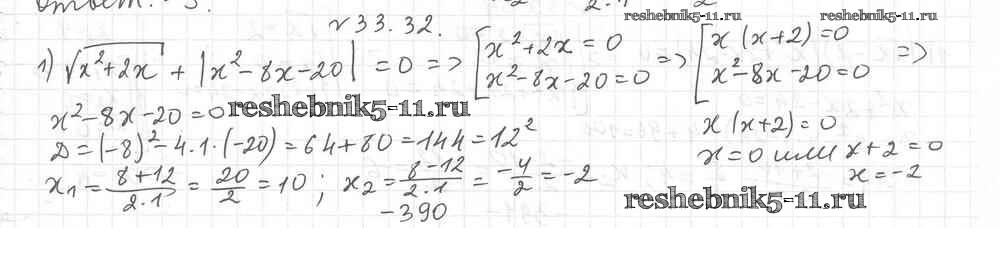 Ответ: 3.
√33.32.
reshebnik5-11.ru reshebnik5-11.ru
1) √(x²+2x) + |x²-8x-20| = 0 => [x²+2x=0 x²-8x-20=0 => [x(x+2)=0 x²-8x-20=0 =>
x²-8x-20=0 reshebnik5-11.ru
D=(-8)²-4·1·(-20)=64+80=144=12²
x₁=(8+12)/(2·1)=20/2=10; x₂=(8-12)/(2·1)=-4/2=-2
x(x+2)=0
x=0 или x+2=0
x=-2
-390
reshebnik5-11.ru